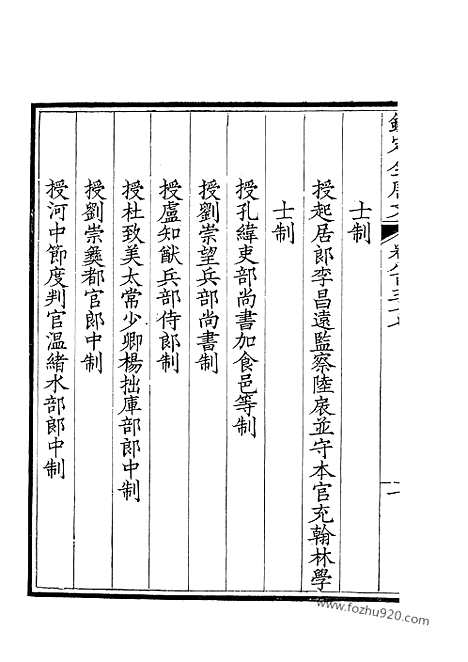 士制
授起居郎李昌遠監察陸扆並守本官充翰林學
士制
授孔緯吏部尚書加食邑等制
授劉崇望兵部尚書制
授盧知猷兵部侍郎制
授杜致美太常少卿楊拙庫部郎中制
授劉崇彝都官郎中制
授河中節度判官溫緒水部郎中制
www.fozhu920.com